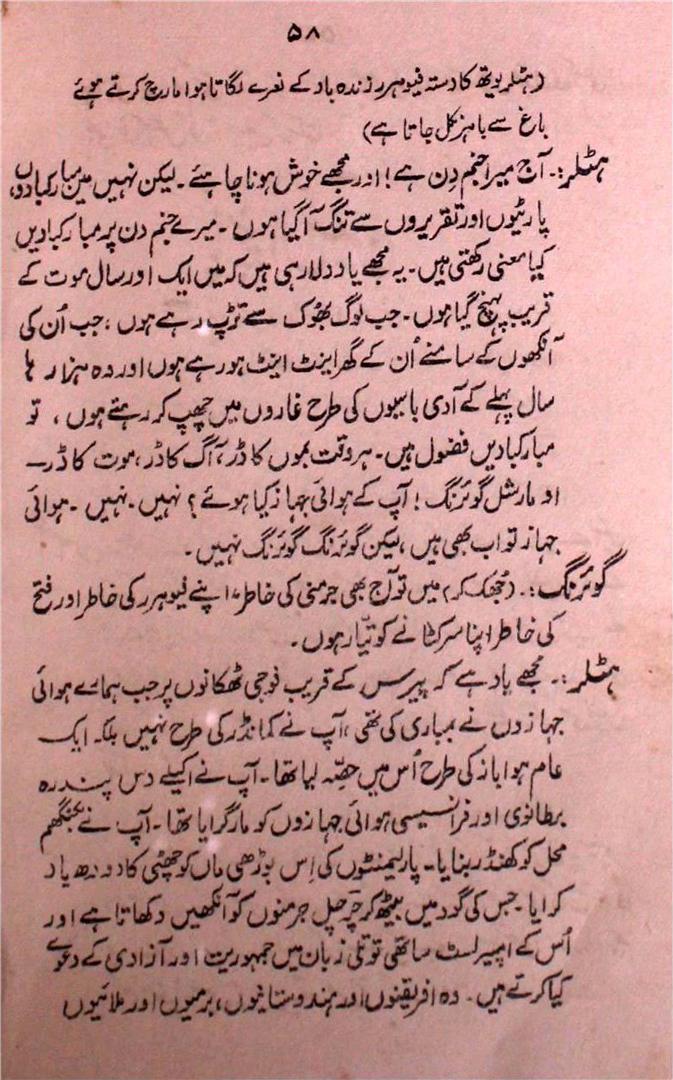 ۵۸
(ہٹلر یوتھ کا دستہ فیوہرر زندہ باد کے نعرے لگاتا ہوا مارچ کرتے ہوئے
باغ سے باہر نکل جاتا ہے)
ہٹلر:۔ آج میرا جنم دِن ہے! اور مجھے خوش ہونا چاہئے۔ لیکن نہیں میں مبارکبادوں،
پارٹیوں اور تقریروں سے تنگ آ گیا ہوں۔ میرے جنم دن پر مبارکبادیں
کیا معنی رکھتی ہیں۔ یہ مجھے یاد دلا رہی ہیں کہ میں ایک اور سال موت کے
قریب پہنچ گیا ہوں۔ جب لوگ بھُوک سے تڑپ رہے ہوں، جب اُن کی
آنکھوں کے سامنے اُن کے گھر اینٹ اینٹ ہو رہے ہوں اور وہ ہزار ہا
سال پہلے کے آدی باسیوں کی طرح غاروں میں چھپ کر رہتے ہوں، تو
مبارکبادیں فضول ہیں۔ ہر وقت بموں کا ڈر، آگ کا ڈر، موت کا ڈر۔
او مارشل گوئرنگ! آپ کے ہوائی جہاز کیا ہوئے؟ نہیں۔ نہیں۔ ہوائی
جہاز تو اب بھی ہیں، لیکن گوئرنگ گوئرنگ نہیں۔
گوئرنگ:۔ (جُھک کر) میں تو آج بھی جرمنی کی خاطر، اپنے فیوہرر کی خاطر اور فتح
کی خاطر اپنا سر کٹانے کو تیّار ہوں۔
ہٹلر:۔ مجھے یاد ہے کہ پیرس کے قریب فوجی ٹھکانوں پر جب ہمارے ہوائی
جہازوں نے بمباری کی تھی، آپ نے کمانڈر کی طرح نہیں بلکہ ایک
عام ہوا باز کی طرح اُس میں حصّہ لیا تھا۔ آپ نے اکیلے دس پندرہ
برطانوی اور فرانسیسی ہوائی جہازوں کو مار گرایا تھا۔ آپ نے بکنگھم
محل کو کھنڈر بنایا۔ پارلیمنٹوں کی اِس بوڑھی ماں کو چھٹی کا دودھ یاد
کرایا۔ جس کی گود میں بیٹھ کر چرچل جرمنوں کو آنکھیں دکھاتا ہے اور
اُس کے امپیرلسٹ ساتھی توتلی زبان میں جمہوریت اور آزادی کے دعوے
کیا کرتے ہیں۔ وہ افریقنوں اور ہندوستانیوں، برمیوں اور ملائیوں